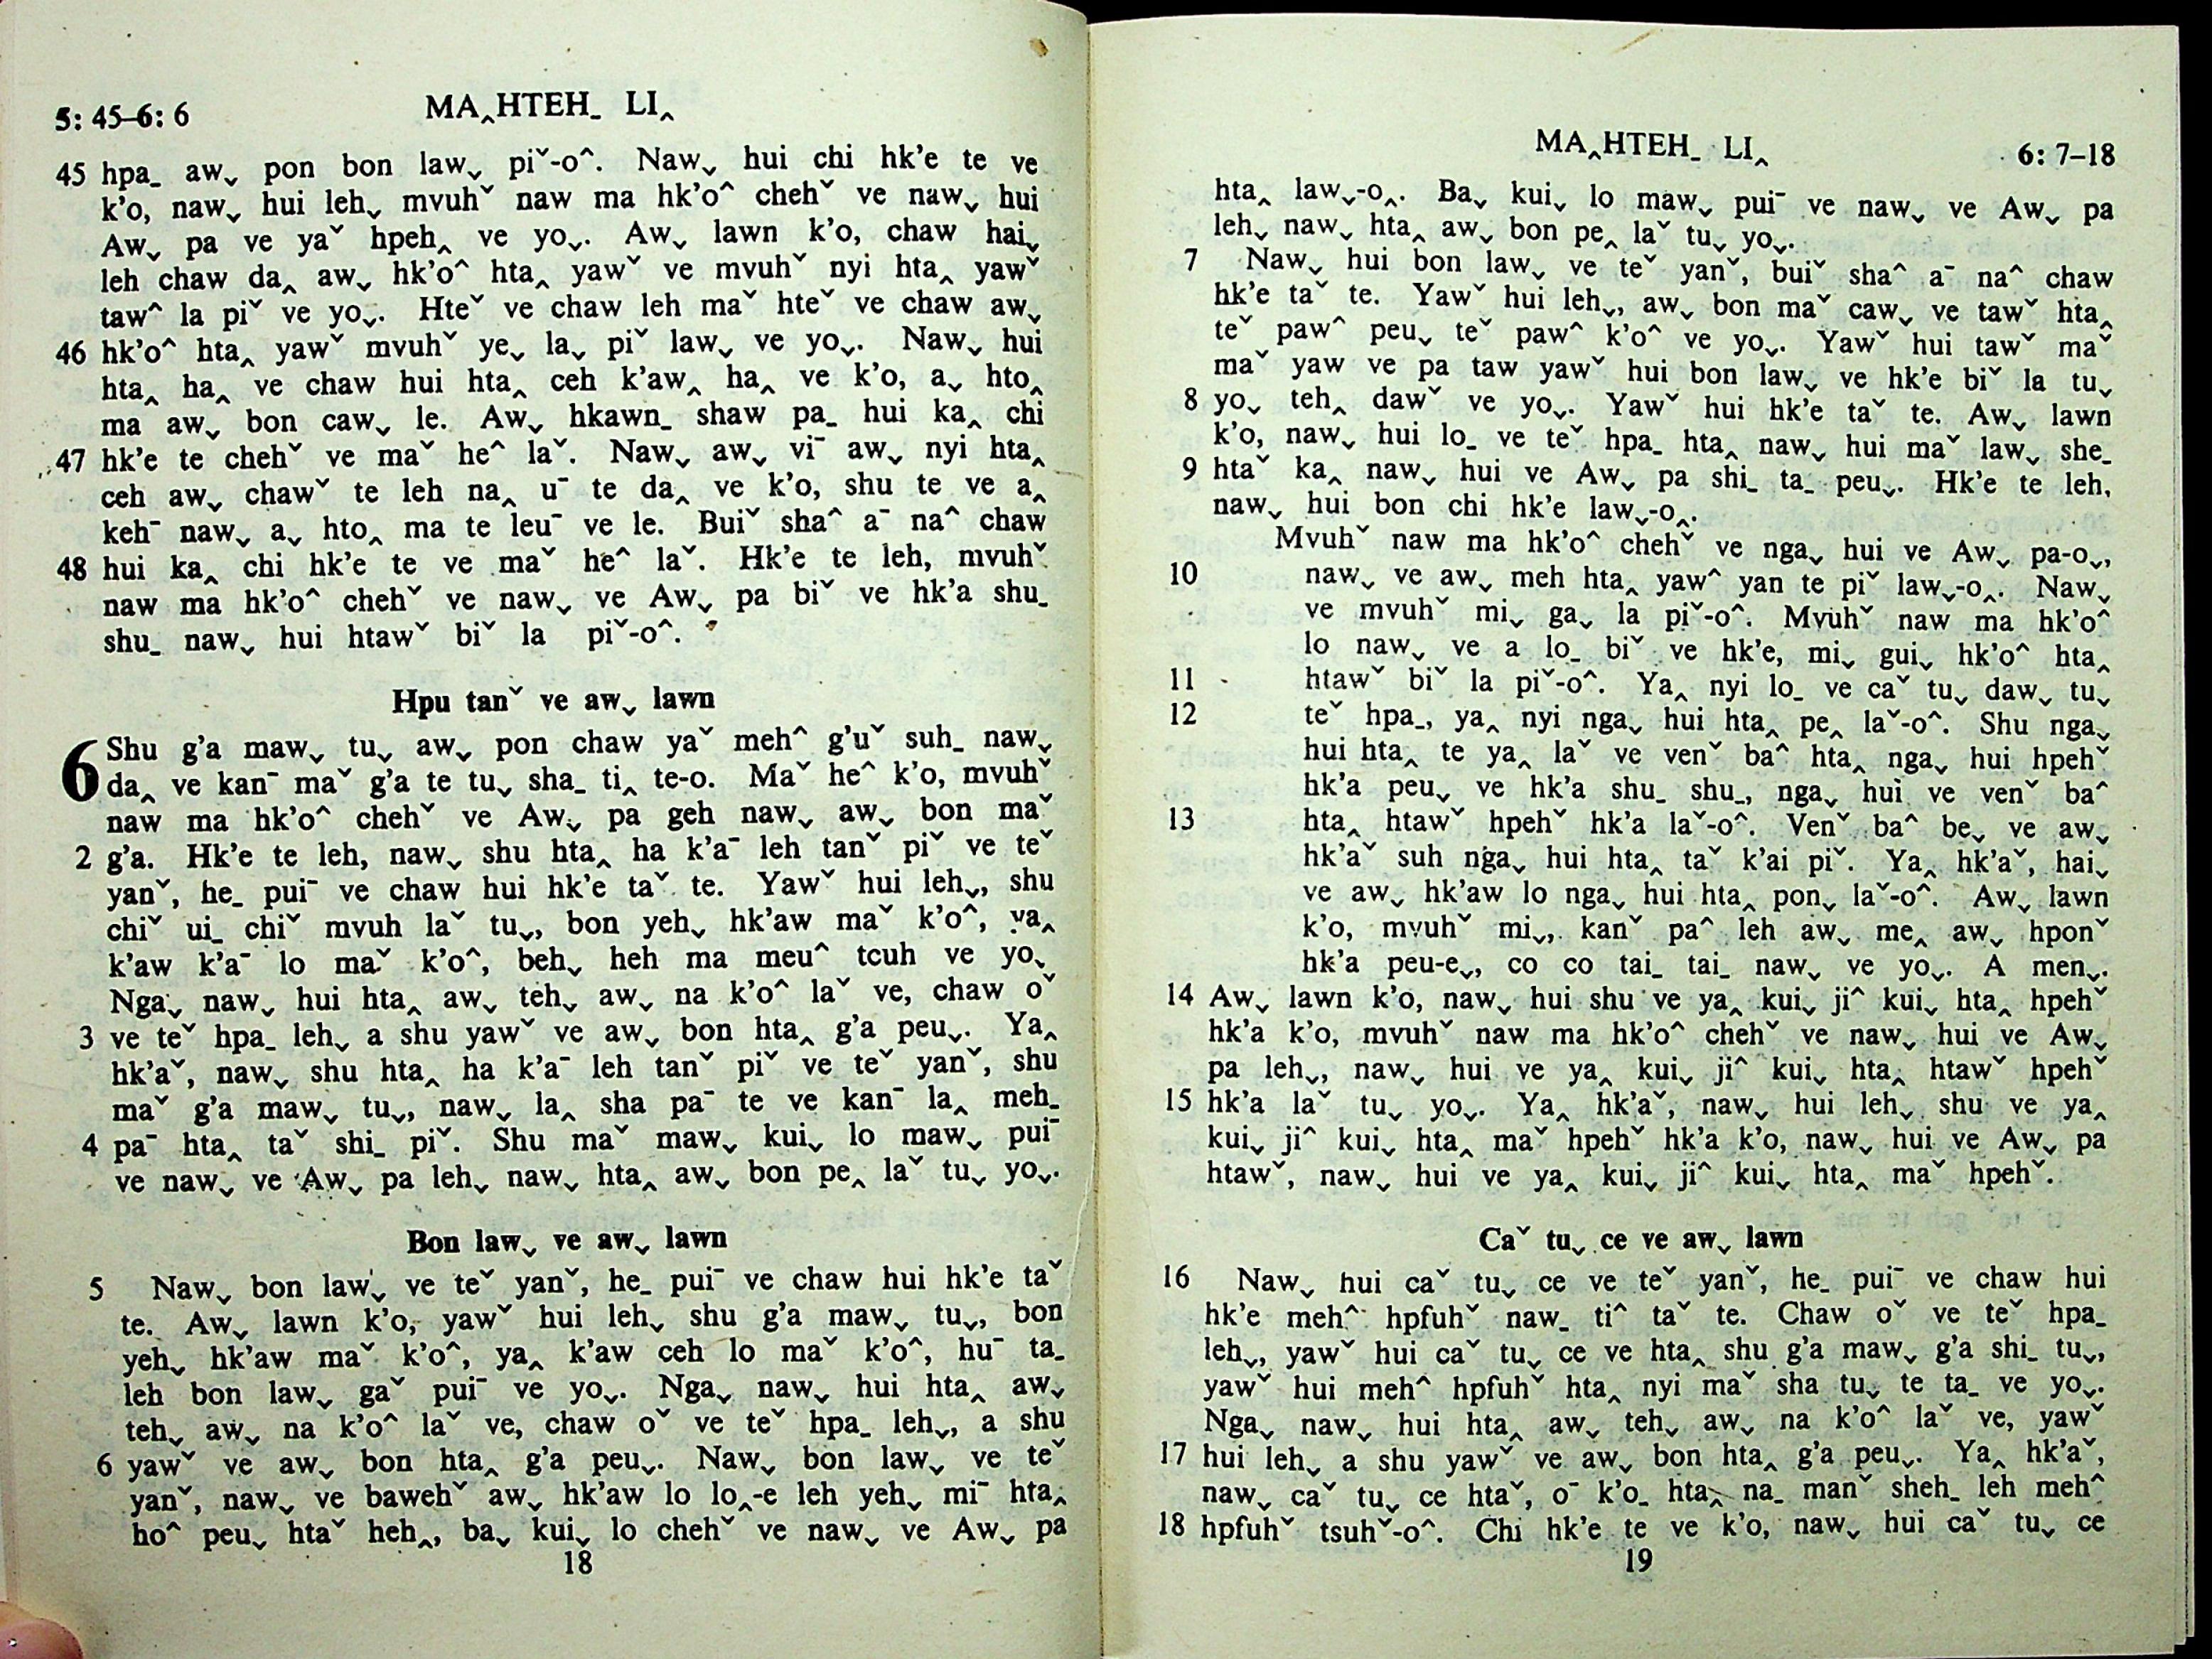 5: 45–6: 6
MA‸HTEH_ LI‸
45 hpa_ aw⌄ pon bon law⌄ piˇ-o^. Naw⌄ hui chi hk'e te ve
k'o, naw⌄ hui leh⌄ mvuhˇ naw ma hk'o^ chehˇ ve naw⌄ hui
Aw⌄ pa ve yaˇ hpeh‸ ve yo⌄. Aw⌄ lawn k'o, chaw hai⌄
leh chaw da‸ aw⌄ hk'o^ hta‸ yawˇ ve mvuhˇ nyi hta‸ yawˇ
taw^ la piˇ ve yo⌄. Hteˇ ve chaw leh maˇ hteˇ ve chaw aw⌄
46 hk'o^ hta‸ yawˇ mvuhˇ ye⌄ la⌄ piˇ law⌄ ve yo⌄. Naw⌄ hui
hta‸ ha‸ ve chaw hui hta‸ ceh k'aw‸ ha‸ ve k'o, a⌄ hto‸
ma aw⌄ bon caw⌄ le. Aw⌄ hkawn_ shaw pa_ hui ka‸ chi
47 hk'e te chehˇ ve maˇ he^ laˇ. Naw⌄ aw⌄ viˉ aw⌄ nyi hta‸
ceh aw⌄ chawˇ te leh na‸ uˉ te da‸ ve k'o, shu te ve a‸
kehˉ naw⌄ a⌄ hto‸ ma te leuˉ ve le. Buiˇ sha^ aˉ na^ chaw
48 hui ka‸ chi hk'e te ve maˇ he^ laˇ. Hk'e te leh, mvuhˇ
naw ma hk'o^ chehˇ ve naw⌄ ve Aw⌄ pa biˇ ve hk'a shu_
shu_ naw⌄ hui htawˇ biˇ la piˇ-o^.
Hpu tanˇ ve aw⌄ lawn
6 Shu g'a maw⌄ tu⌄ aw⌄ pon chaw yaˇ meh^ g'uˇ suh_ naw⌄
da‸ ve kanˉ maˇ g'a te tu⌄ sha_ ti‸ te-o. Maˇ he^ k'o, mvuhˇ
naw ma hk'o^ chehˇ ve Aw⌄ pa geh naw⌄ aw⌄ bon maˇ
2 g'a. Hk'e te leh, naw⌄ shu hta‸ ha k'aˉ leh tanˇ piˇ ve teˇ
yanˇ, he_ puiˉ ve chaw hui hk'e taˇ te. Yawˇ hui leh⌄, shu
chiˇ ui_ chiˇ mvuh laˇ tu⌄, bon yeh⌄ hk'aw maˇ k'o^, ya‸
k'aw k'aˉ lo maˇ k'o^, beh⌄ heh ma meu^ tcuh ve yo⌄
Nga⌄ naw⌄ hui hta‸ aw⌄ teh⌄ aw⌄ na k'o^ laˇ ve, chaw oˇ
3 ve teˇ hpa_ leh⌄ a shu yawˇ ve aw⌄ bon hta‸ g'a peu⌄. Ya‸
hk'aˇ, naw⌄ shu hta‸ ha k'aˉ leh tanˇ piˇ ve teˇ yanˇ, shu
maˇ g'a maw⌄ tu⌄, naw⌄ la‸ sha paˉ te ve kanˉ la‸ meh_
4 paˉ hta‸ taˇ shi_ piˇ. Shu maˇ maw⌄ kui⌄ lo maw⌄ puiˉ
ve naw⌄ ve Aw⌄ pa leh⌄ naw⌄ hta‸ aw⌄ bon pe‸ laˇ tu⌄ yo⌄.
Bon law⌄ ve aw⌄ lawn
5 Naw⌄ bon law⌄ ve teˇ yanˇ, he_ puiˉ ve chaw hui hk'e taˇ
te. Aw⌄ lawn k'o, yawˇ hui leh⌄ shu g'a maw⌄ tu⌄, bon
yeh⌄ hk'aw maˇ k'o^, ya‸ k'aw ceh lo maˇ k'o^, huˉ ta_
leh bon law⌄ gaˇ puiˉ ve yo⌄. Nga⌄ naw⌄ hui hta‸ aw⌄
teh⌄ aw⌄ na k'o^ laˇ ve, chaw oˇ ve teˇ hpa_ leh⌄, a shu
6 yawˇ ve aw⌄ bon hta‸ g'a peu⌄. Naw⌄ bon law⌄ ve teˇ
yanˇ, naw⌄ ve bawehˇ aw⌄ hk'aw lo lo‸-e leh yeh⌄ miˉ hta‸
ho^ peu⌄ htaˇ heh‸, ba⌄ kui⌄ lo chehˇ ve naw⌄ ve Aw⌄ pa
18
MA‸HTEH_ LI‸
6: 7–18
hta‸ law⌄-o‸. Ba⌄ kui⌄ lo maw⌄ puiˉ ve naw⌄ ve Aw⌄ pa
leh⌄ naw⌄ hta‸ aw⌄ bon pe‸ laˇ tu⌄ yo⌄.
7 Naw⌄ hui bon law⌄ ve teˇ yanˇ, buiˇ sha^ aˉ na^ chaw
hk'e taˇ te. Yawˇ hui leh⌄, aw⌄ bon maˇ caw⌄ ve tawˇ hta‸
teˇ paw^ peu⌄ teˇ paw^ k'o^ ve yo⌄. Yawˇ hui tawˇ maˇ
maˇ yaw ve pa taw yawˇ hui bon law⌄ ve hk'e biˇ la tu⌄
8 yo⌄ teh‸ dawˇ ve yo⌄. Yawˇ hui hk'e taˇ te. Aw⌄ lawn
k'o, naw⌄ hui lo_ ve teˇ hpa_ hta‸ naw⌄ hui maˇ law⌄ she_
9 htaˇ ka‸ naw⌄ hui ve Aw⌄ pa shi_ ta_ peu⌄. Hk'e te leh,
naw⌄ hui bon chi hk'e law⌄-o‸.
Mvuhˇ naw ma hk'o^ chehˇ ve nga⌄ hui ve Aw⌄ pa-o⌄,
10 naw⌄ ve aw⌄ meh hta‸ yaw^ yan te piˇ law⌄-o‸. Naw⌄
ve mvuhˇ mi⌄ ga⌄ la piˇ-o^. Mvuhˇ naw ma hk'o^
lo naw⌄ ve a lo_ biˇ ve hk'e, mi⌄ gui⌄ hk'o^ hta‸
11 htawˇ biˇ la piˇ-o^. Ya‸ nyi lo_ ve caˇ tu⌄ daw⌄ tu⌄
12 teˇ hpa_, ya‸ nyi nga⌄ hui hta‸ pe‸ laˇ-o^. Shu nga⌄
hui hta‸ te ya‸ laˇ ve venˇ ba^ hta‸ nga⌄ hui hpehˇ
hk'a peu⌄ ve hk'a shu_ shu_, nga⌄ hui ve venˇ ba^
13 hta‸ htawˇ hpehˇ hk'a laˇ-o^. Venˇ ba^ be⌄ ve aw⌄
hk'aˇ suh nga⌄ hui hta‸ taˇ k'ai piˇ. Ya‸ hk'aˇ, hai⌄
ve aw⌄ hk'aw lo nga⌄ hui hta‸ pon⌄ laˇ-o^. Aw⌄ lawn
k'o, mvuhˇ mi⌄, kanˇ pa^ leh aw⌄ me‸ aw⌄ hponˇ
hk'a peu-e⌄, co co tai_ tai_ naw⌄ ve yo⌄. A men⌄.
14 Aw⌄ lawn k'o, naw⌄ hui shu ve ya‸ kui⌄ ji^ kui⌄ hta‸ hpehˇ
hk'a k'o, mvuhˇ naw ma hk'o^ chehˇ ve naw⌄ hui ve Aw⌄
pa leh⌄, naw⌄ hui ve ya‸ kui⌄ ji^ kui⌄ hta‸ htawˇ hpehˇ
15 hk'a laˇ tu⌄ yo⌄. Ya‸ hk'aˇ, naw⌄ hui leh⌄ shu ve ya‸
kui⌄ ji^ kui⌄ hta‸ maˇ hpehˇ hk'a k'o, naw⌄ hui ve Aw⌄ pa
htawˇ, naw⌄ hui ve ya‸ kui⌄ ji^ kui⌄ hta‸ maˇ hpehˇ.
Caˇ tu⌄ ce ve aw⌄ lawn
16 Naw⌄ hui caˇ tu⌄ ce ve teˇ yanˇ, he_ puiˉ ve chaw hui
hk'e meh^ hpfuhˇ naw_ ti^ taˇ te. Chaw oˇ ve teˇ hpa_
leh⌄, yawˇ hui caˇ tu⌄ ce ve hta‸ shu g'a maw⌄ g'a shi_ tu⌄,
yawˇ hui meh^ hpfuhˇ hta‸ nyi maˇ sha tu⌄ te ta_ ve yo⌄.
Nga⌄ naw⌄ hui hta‸ aw⌄ teh⌄ aw⌄ na k'o^ laˇ ve, yawˇ
17 hui leh⌄ a shu yawˇ ve aw⌄ bon hta‸ g'a peu⌄. Ya‸ hk'aˇ,
naw⌄ caˇ tu⌄ ce htaˇ, oˉ k'o_ hta‸ na_ manˇ sheh_ leh meh^
18 hpfuhˇ tsuhˇ-o^. Chi hk'e te ve k'o, naw⌄ hui caˇ tu⌄ ce
19